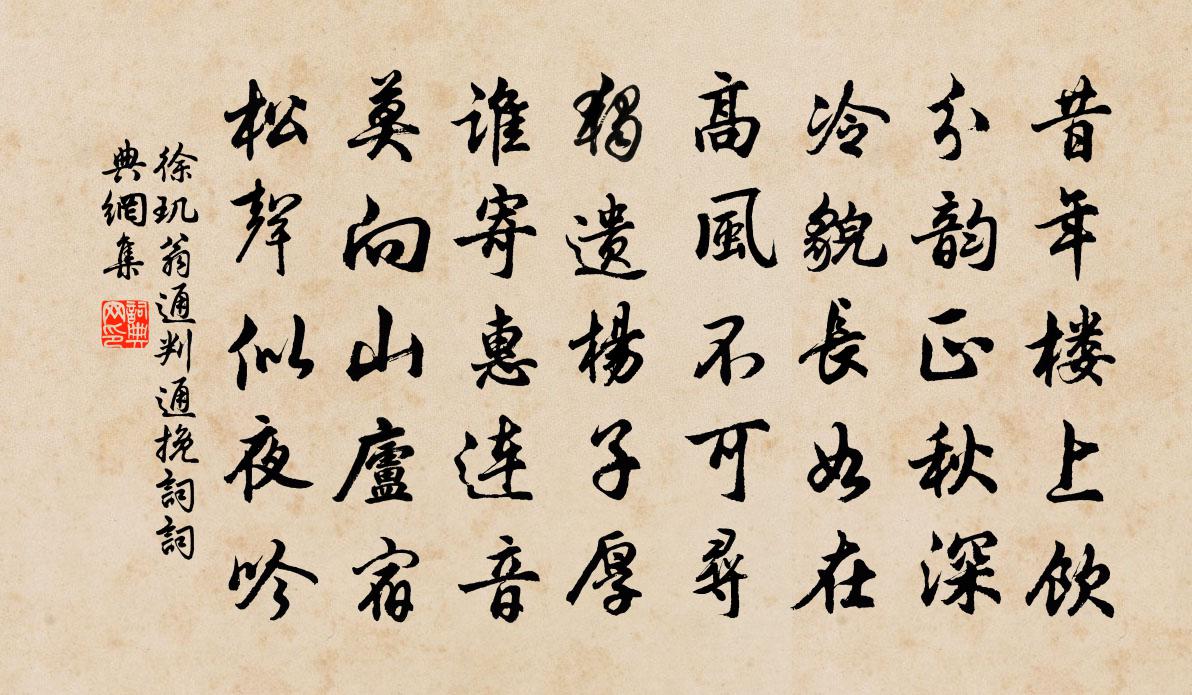 昔年楼上飲
分韵正秋深
冷貌長如在
高風不可尋
獨遺楊子厚
誰寄惠連音
莫向山廬宿
松聲似夜吟
徐玑翁通判通挽詞詞
典網集
詞典網印